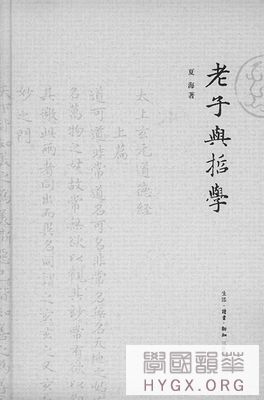 老子與哲學
夏海著
生活·讀書·新知
太上玄元道德經
上篇
道可道非常道名可名非常名無名天地之始
名萬物之母故常無欲以觀其妙常有欲以觀
其徼此兩者同出而異名同謂之玄玄之又玄
妙之門
學國韻華
HYGX.ORG